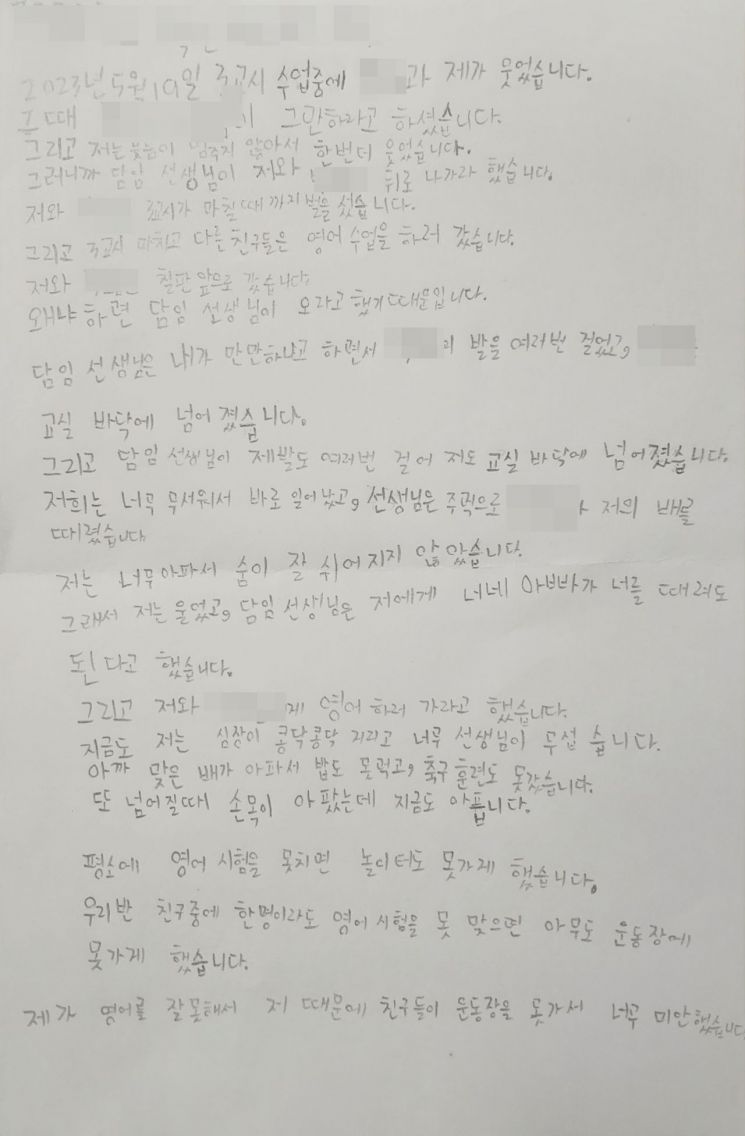 2023년 5월 19일 3교시 수업중에 과 제가 웃었습니다.
그때 그만하라고 하셨습니다.
그리고 저는 웃음이 멈추지 않아서 한번더 웃었습니다.
그러니까 담임 선생님이 저와 뒤로 나가라 했습니다.
저와 3교시가 마칠때까지 벌을 섰습니다.
그리고 3교시 마치고 다른 친구들은 영어 수업을 하러 갔습니다.
저와 칠판 앞으로 갔습니다
왜냐하면 담임 선생님이 오라고 했기 때문입니다.
담임 선생님은 내가 만만하냐고 하면서 의 발을 여러번 걸었고,
교실 바닥에 넘어졌습니다.
그리고 담임 선생님이 제발도 여러번 걸어 저도 교실 바닥에 넘어졌습니다.
저희는 너무 무서워서 바로 일어났고, 선생님은 주먹으로 저의 배를
때렸습니다
저는 너무 아파서 숨이 잘 쉬어지지 않았습니다.
그래서 저는 울었고, 담임 선생님은 저에게 너네 아빠가 너를 때려도
된다고 했습니다.
그리고 저와 에게 영어 하러 가라고 했습니다.
지금도 저는 심장이 콩닥콩닥 거리고 너무 선생님이 무섭습니다.
아까 맞은 배가 아파서 밥도 못먹고, 축구 훈련도 못갔습니다.
또 넘어질때 손목이 아팠는데 지금도 아픕니다.
평소에 영어 시험을 못치면 놀이터도 못가게 했습니다.
우리반 친구중에 한명이라도 영어 시험을 못 맞으면 아무도 운동장에
못가게 했습니다.
제가 영어를 잘못해서 저 때문에 친구들이 운동장을 못가서 너무 미안했습니다